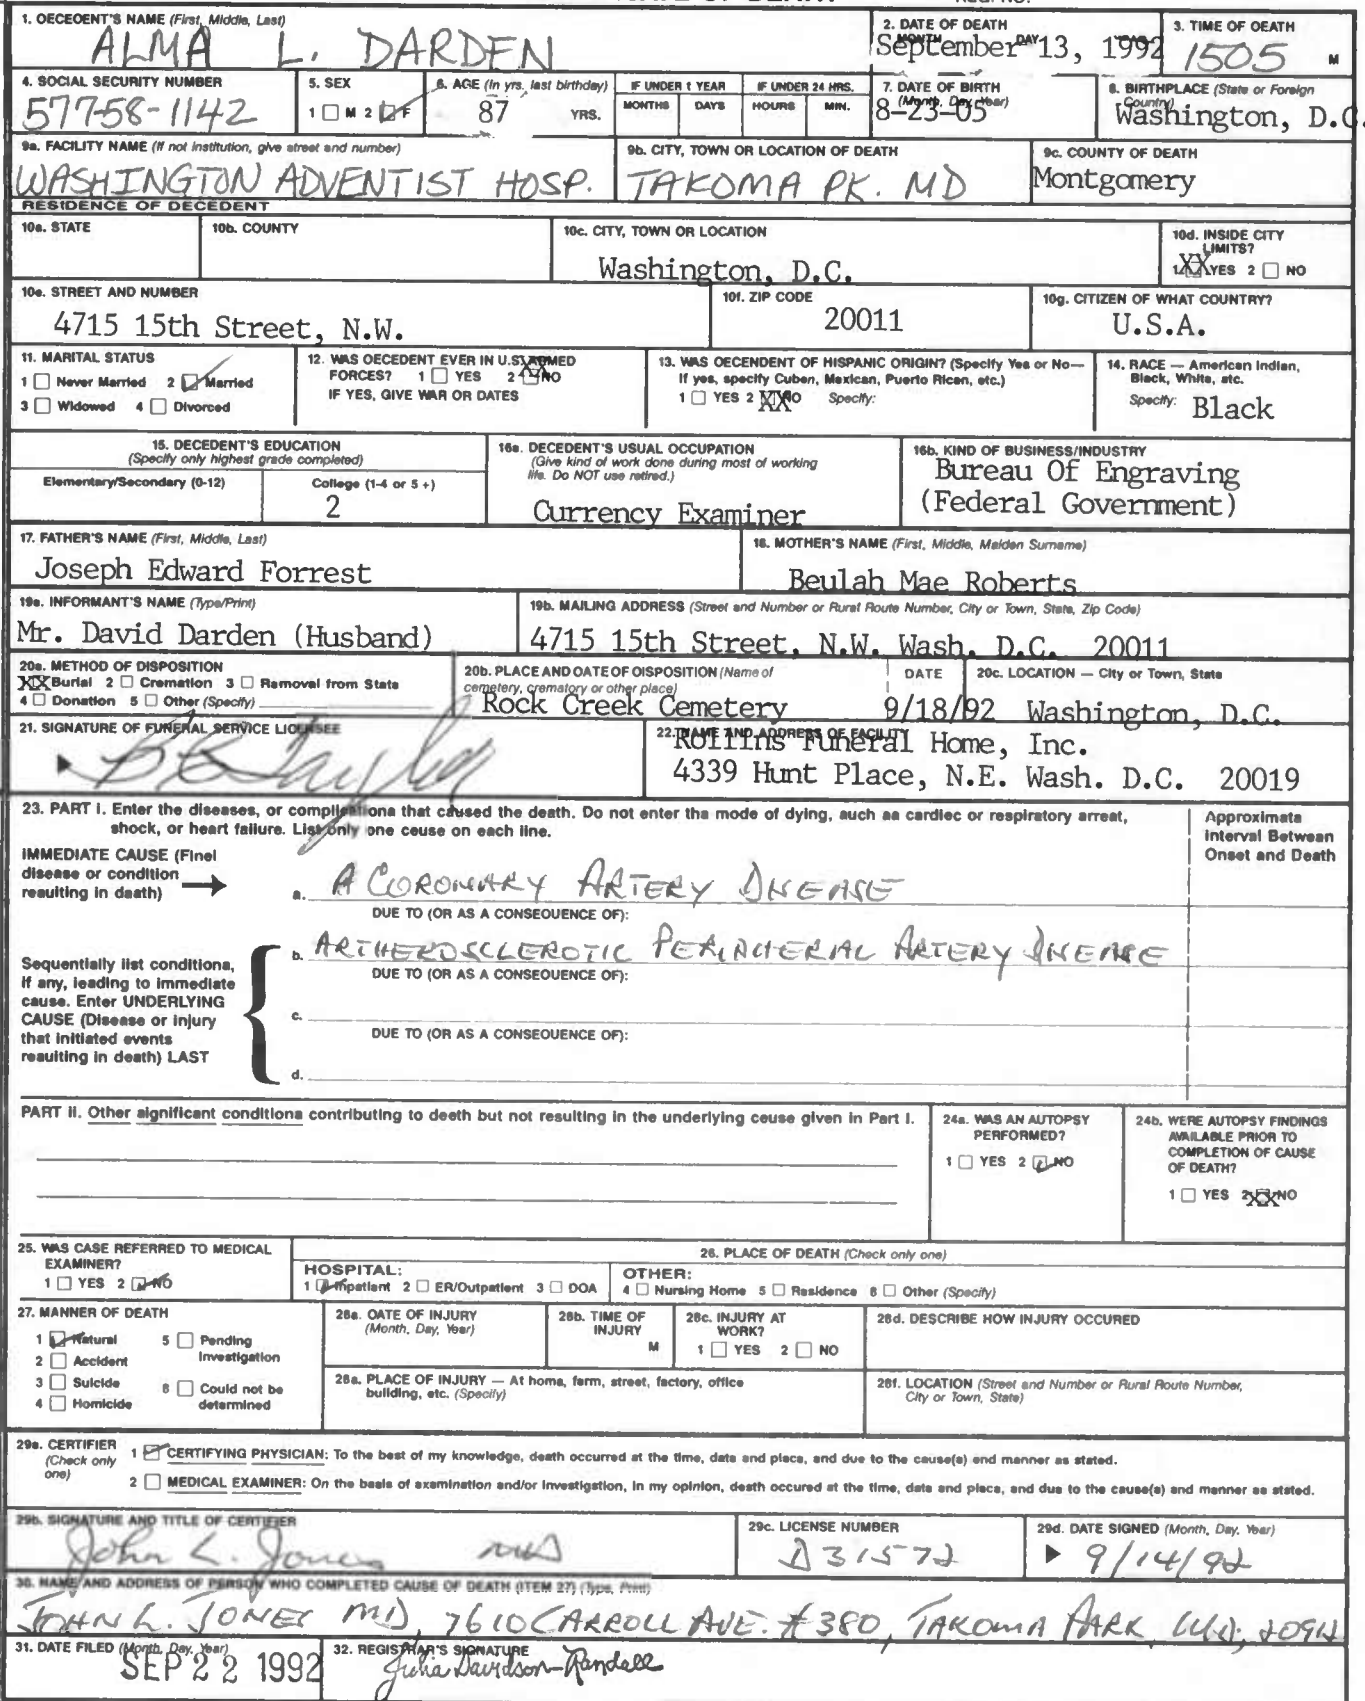 1. DECEDENT'S NAME (First, Middle, Last)
ALMA L. DARDEN
2. DATE OF DEATH
MONTH DAY
September 13, 1992
3. TIME OF DEATH
1505 M
4. SOCIAL SECURITY NUMBER
577-58-1142
5. SEX
1 M 2 F
6. AGE (In yrs. last birthday)
87 YRS.
IF UNDER 1 YEAR
MONTHS DAYS
IF UNDER 24 HRS.
HOURS MIN.
7. DATE OF BIRTH
(Month, Day, Year)
8-23-05
8. BIRTHPLACE (State or Foreign
Country)
Washington, D.C.
9a. FACILITY NAME (If not institution, give street and number)
WASHINGTON ADVENTIST HOSP.
9b. CITY, TOWN OR LOCATION OF DEATH
TAKOMA PK. MD
9c. COUNTY OF DEATH
Montgomery
RESIDENCE OF DECEDENT
10a. STATE
10b. COUNTY
10c. CITY, TOWN OR LOCATION
Washington, D.C.
10d. INSIDE CITY
LIMITS?
1 XX YES 2 NO
10e. STREET AND NUMBER
4715 15th Street, N.W.
10f. ZIP CODE
20011
10g. CITIZEN OF WHAT COUNTRY?
U.S.A.
11. MARITAL STATUS
1 Never Married 2 Married
3 Widowed 4 Divorced
12. WAS DECEDENT EVER IN U.S. ARMED
FORCES? 1 YES 2 XX NO
IF YES, GIVE WAR OR DATES
13. WAS DECENDENT OF HISPANIC ORIGIN? (Specify Yes or No—
If yes, specify Cuban, Mexican, Puerto Rican, etc.)
1 YES 2 XX NO Specify:
14. RACE — American Indian,
Black, White, etc.
Specify: Black
15. DECEDENT'S EDUCATION
(Specify only highest grade completed)
Elementary/Secondary (0-12)
College (1-4 or 5+)
2
16a. DECEDENT'S USUAL OCCUPATION
(Give kind of work done during most of working
life. Do NOT use retired.)
Currency Examiner
16b. KIND OF BUSINESS/INDUSTRY
Bureau Of Engraving
(Federal Government)
17. FATHER'S NAME (First, Middle, Last)
Joseph Edward Forrest
18. MOTHER'S NAME (First, Middle, Maiden Surname)
Beulah Mae Roberts
19a. INFORMANT'S NAME (Type/Print)
Mr. David Darden (Husband)
19b. MAILING ADDRESS (Street and Number or Rural Route Number, City or Town, State, Zip Code)
4715 15th Street, N.W. Wash. D.C. 20011
20a. METHOD OF DISPOSITION
XX Burial 2 Cremation 3 Removal from State
4 Donation 5 Other (Specify)
20b. PLACE AND DATE OF DISPOSITION (Name of
cemetery, crematory or other place)
Rock Creek Cemetery
DATE
9/18/92
20c. LOCATION — City or Town, State
Washington, D.C.
21. SIGNATURE OF FUNERAL SERVICE LICENSEE
22. NAME AND ADDRESS OF FACILITY
Rollins Funeral Home, Inc.
4339 Hunt Place, N.E. Wash. D.C. 20019
23. PART I. Enter the diseases, or complications that caused the death. Do not enter the mode of dying, such as cardiac or respiratory arrest,
shock, or heart failure. List only one cause on each line.
Approximate
Interval Between
Onset and Death
IMMEDIATE CAUSE (Final
disease or condition
resulting in death)
a. A CORONARY ARTERY DISEASE
DUE TO (OR AS A CONSEQUENCE OF):
b. ARTHEROSCLEROTIC PERIPHERIAL ARTERY DISEASE
DUE TO (OR AS A CONSEQUENCE OF):
Sequentially list conditions,
if any, leading to immediate
cause. Enter UNDERLYING
CAUSE (Disease or injury
that initiated events
resulting in death) LAST
c.
DUE TO (OR AS A CONSEQUENCE OF):
d.
PART II. Other significant conditions contributing to death but not resulting in the underlying cause given in Part I.
24a. WAS AN AUTOPSY
PERFORMED?
1 YES 2 NO
24b. WERE AUTOPSY FINDINGS
AVAILABLE PRIOR TO
COMPLETION OF CAUSE
OF DEATH?
1 YES 2 XX NO
25. WAS CASE REFERRED TO MEDICAL
EXAMINER?
1 YES 2 NO
26. PLACE OF DEATH (Check only one)
HOSPITAL:
1 Inpatient 2 ER/Outpatient 3 DOA
OTHER:
4 Nursing Home 5 Residence 6 Other (Specify)
27. MANNER OF DEATH
1 Natural 5 Pending
Investigation
2 Accident
3 Suicide 6 Could not be
determined
4 Homicide
28a. DATE OF INJURY
(Month, Day, Year)
28b. TIME OF
INJURY
M
28c. INJURY AT
WORK?
1 YES 2 NO
28d. DESCRIBE HOW INJURY OCCURED
28e. PLACE OF INJURY — At home, farm, street, factory, office
building, etc. (Specify)
28f. LOCATION (Street and Number or Rural Route Number,
City or Town, State)
29a. CERTIFIER
(Check only
one)
1 CERTIFYING PHYSICIAN: To the best of my knowledge, death occurred at the time, date and place, and due to the cause(s) and manner as stated.
2 MEDICAL EXAMINER: On the basis of examination and/or investigation, in my opinion, death occured at the time, date and place, and due to the cause(s) and manner as stated.
29b. SIGNATURE AND TITLE OF CERTIFIER
John L. Jones MD
29c. LICENSE NUMBER
D31572
29d. DATE SIGNED (Month, Day, Year)
9/14/92
30. NAME AND ADDRESS OF PERSON WHO COMPLETED CAUSE OF DEATH (ITEM 27) (Type, Print)
JOHN L. JONES MD, 7610 CARROLL AVE. #380, TAKOMA PARK, MD,
31. DATE FILED (Month, Day, Year)
SEP 22 1992
32. REGISTRAR'S SIGNATURE
Julia Davidson-Randall